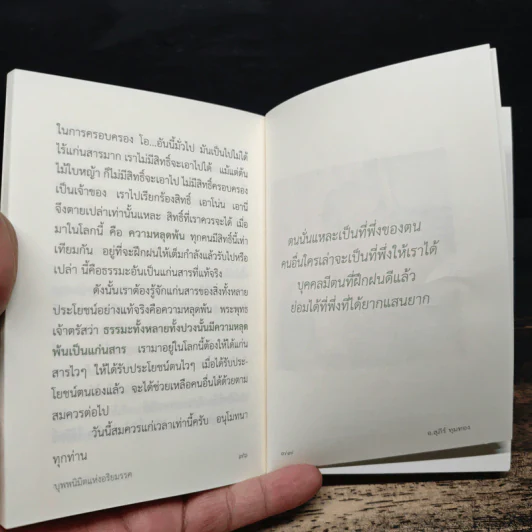 ในการครอบครอง โอ...อันนี้มั่วไป มันเป็นไปไม่ได้
ไร้แก่นสารมาก เราไม่มีสิทธิ์จะเอาไปได้ แม้แต่ต้น
ไม้ใบหญ้า ก็ไม่มีสิทธิ์จะเอาไป ไม่มีสิทธิ์ครอบครอง
เป็นเจ้าของ เราไปเรียกร้องสิทธิ์ เอาโน่น เอานี่
จึงตายเปล่าเท่านั้นแหละ สิทธิ์ที่เราควรจะได้ เมื่อ
มาในโลกนี้ คือ ความหลุดพ้น ทุกคนมีสิทธิ์นี้เท่า
เทียมกัน อยู่ที่จะฝึกฝนให้เต็มกำลังแล้วรับไปหรือ
เปล่า นี้คือธรรมะอันเป็นแก่นสารที่แท้จริง
ดังนั้นเราต้องรู้จักแก่นสารของสิ่งทั้งหลาย
ประโยชน์อย่างแท้จริงคือความหลุดพ้น พระพุทธ
เจ้าตรัสว่า ธรรมะทั้งหลายทั้งปวงนั้นมีความหลุด
พ้นเป็นแก่นสาร เรามาอยู่ในโลกนี้ต้องให้ได้แก่น
สารไวๆ ให้ได้รับประโยชน์ตนไวๆ เมื่อได้รับประ-
โยชน์ตนเองแล้ว จะได้ช่วยเหลือคนอื่นได้ด้วยตาม
สมควรต่อไป
วันนี้สมควรแก่เวลาเท่านี้ครับ อนุโมทนา
ทุกท่าน
บุพพนิมิตแห่งอริยมรรค
ตนนั่นแหละเป็นที่พึ่งของตน
คนอื่นใครเล่าจะเป็นที่พึ่งให้เราได้
บุคคลมีตนที่ฝึกฝนดีแล้ว
ย่อมได้ที่พึ่งที่ได้ยากแสนยาก